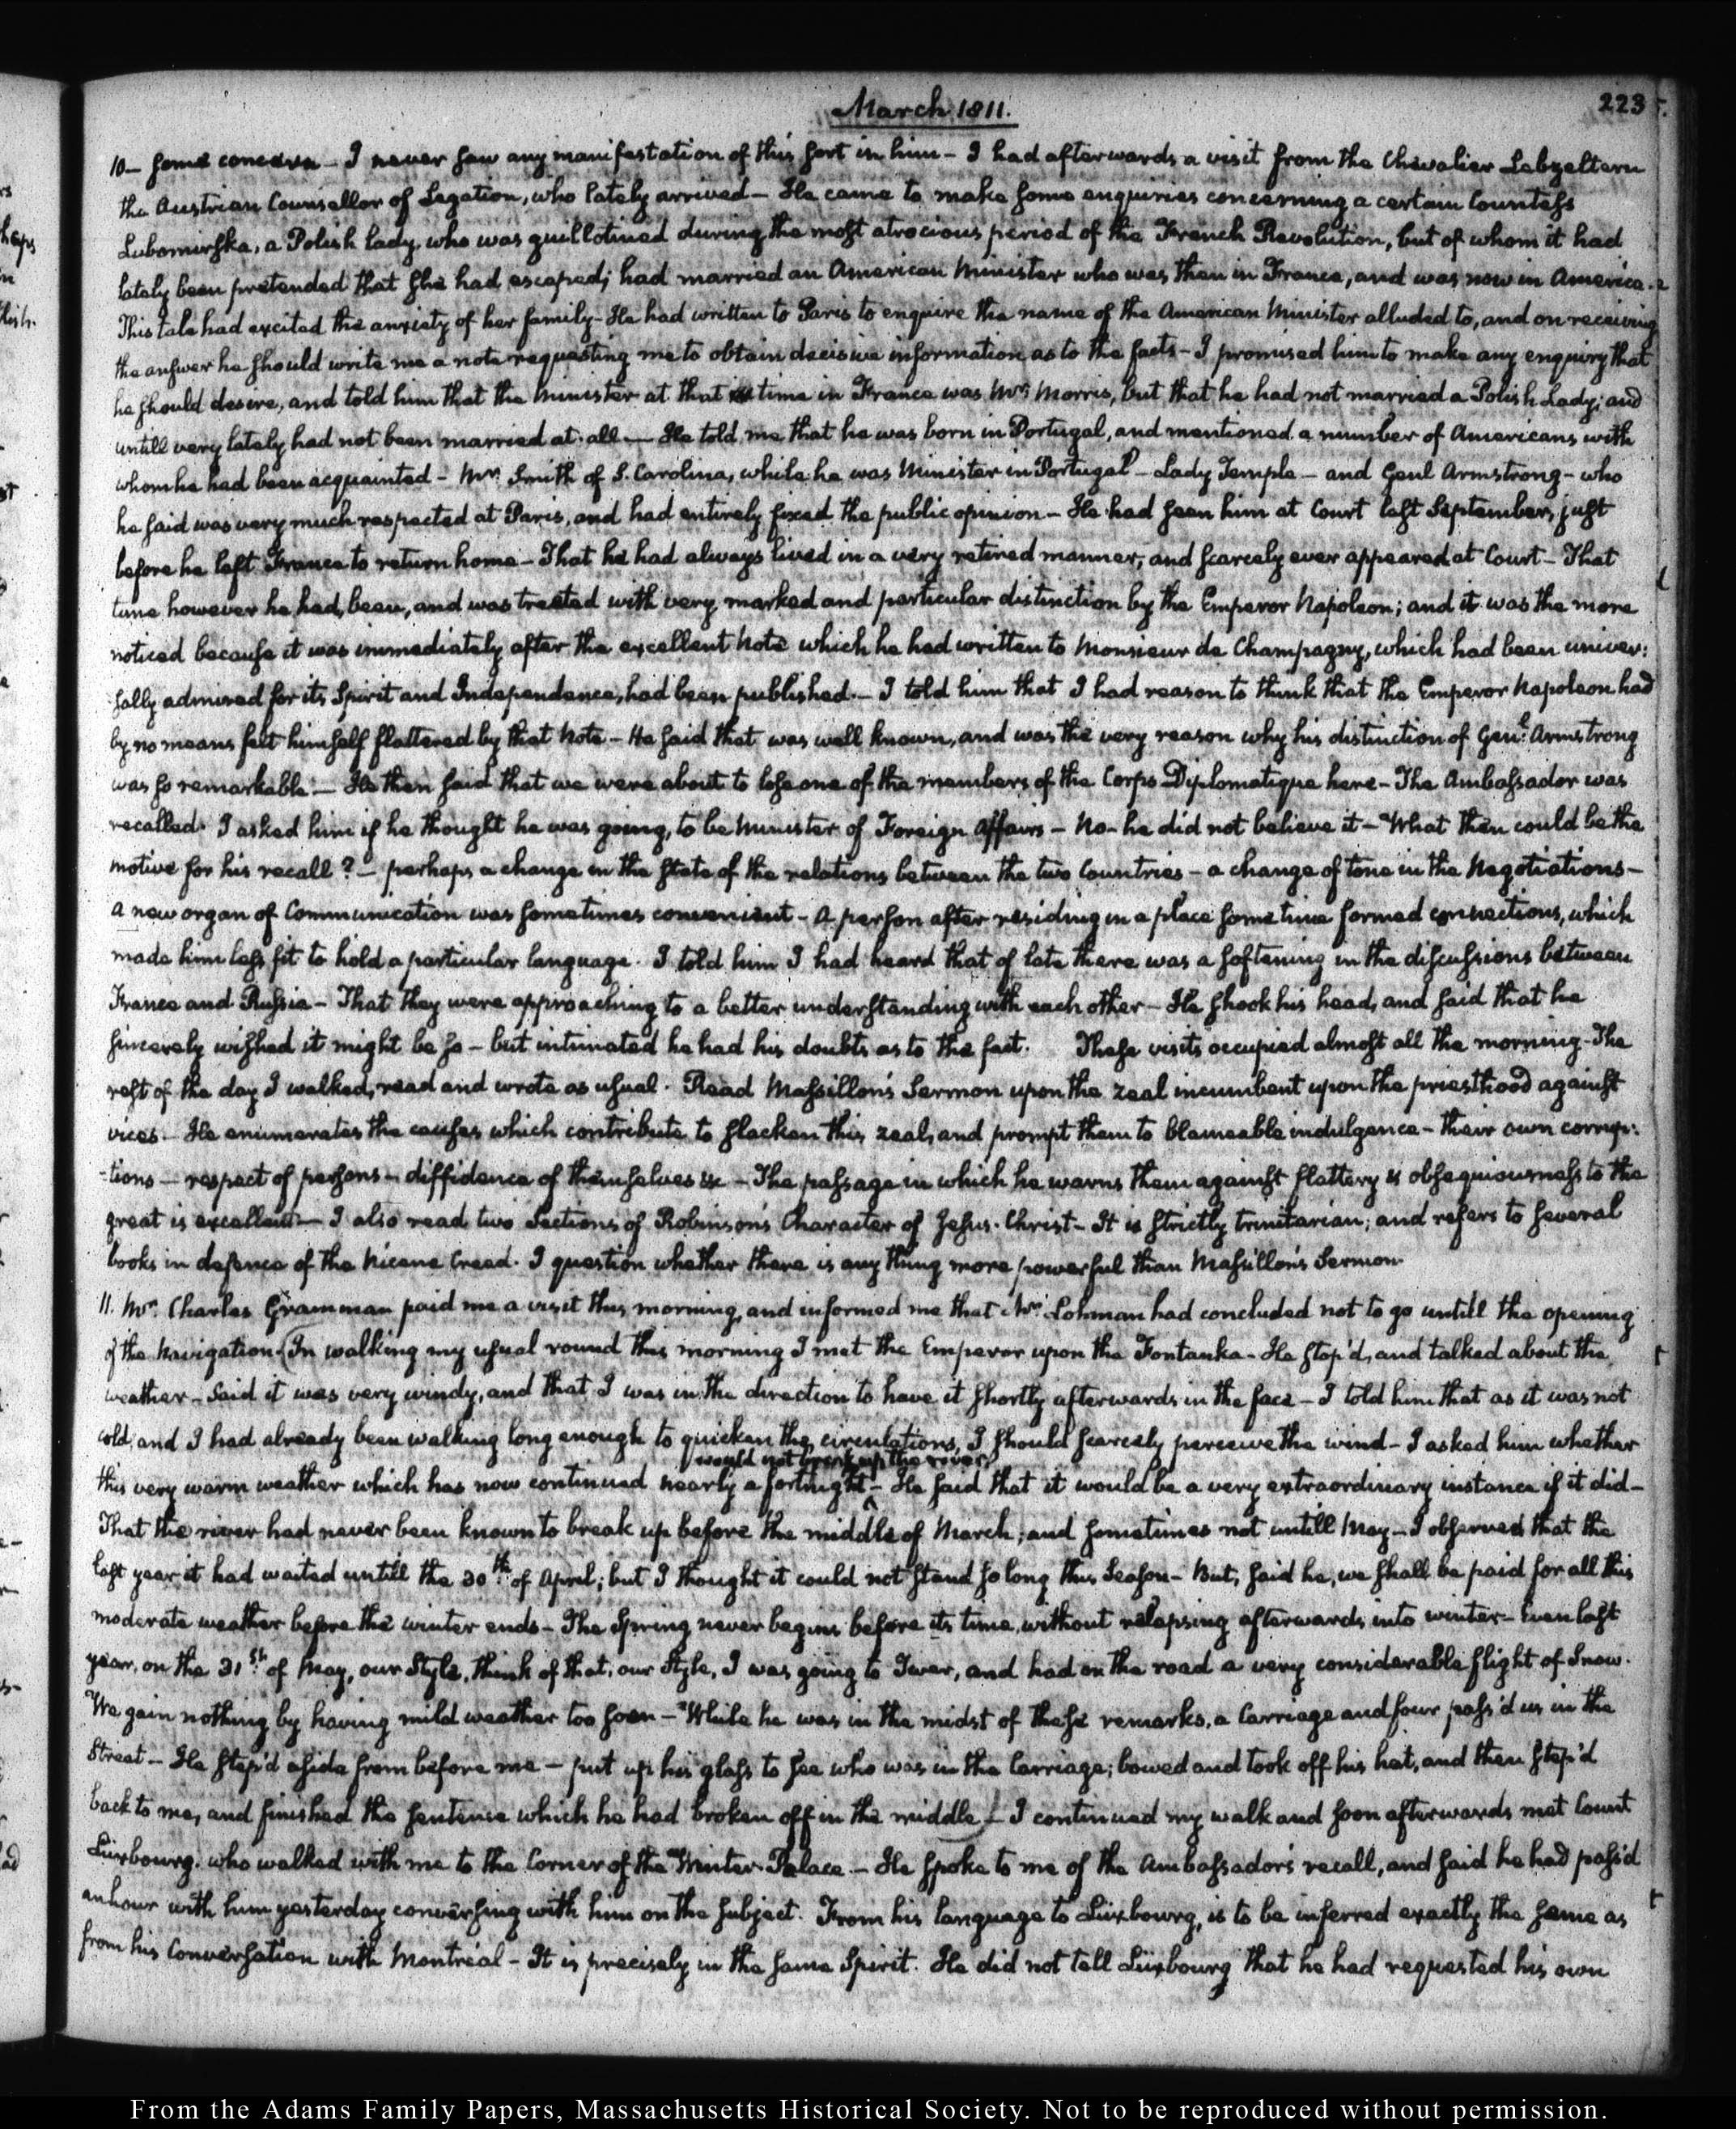 March 1811.
223
10– some concern – I never saw any manifestation of this sort in him – I had afterwards a visit from the Chevalier Lebzeltern
the Austrian Counsellor of Legation, who lately arrived – He came to make some enquiries concerning a certain Countess
Lubomirska, a Polish lady, who was guillotined during the most atrocious period of the French Revolution, but of whom it had
lately been pretended that she had escaped; had married an American Minister who was then in France, and was now in America.
This tale had excited the anxiety of her family – He had written to Paris to enquire the name of the American Minister alluded to, and on receiving
the answer he should write me a note requesting me to obtain decisive information as to the facts – I promised him to make any enquiry that
he should desire, and told him that the Minister at that time in France was Mr. Morris, but that he had not married a Polish Lady; and
untill very lately had not been married at all. – He told me that he was born in Portugal, and mentioned a number of Americans with
whom he had been acquainted – Mr. Smith of S. Carolina, while he was Minister in Portugal – Lady Temple – and Genl Armstrong – who
he said was very much respected at Paris, and had entirely fixed the public opinion – He had seen him at Court last September, just
before he left France to return home – That he had always lived in a very retired manner, and scarcely ever appeared at Court – That
time however he had been, and was treated with very marked and particular distinction by the Emperor Napoleon; and it was the more
noticed because it was immediately after the excellent Note which he had written to Monsieur de Champagny, which had been univer:
sally admired for its Spirit and Independence, had been published. – I told him that I had reason to think that the Emperor Napoleon had
by no means felt himself flattered by that Note – He said that was well known, and was the very reason why his distinction of Genl. Armstrong
was so remarkable. – He then said that we were about to lose one of the members of the Corps Diplomatique here – The Ambassador was
recalled. I asked him if he thought he was going to be Minister of Foreign Affairs – No – he did not believe it – What then could be the
motive for his recall? – perhaps a change in the state of the relations between the two Countries – a change of tone in the Negotiations –
A new organ of Communication was sometimes convenient – A person after residing in a place some time formed connections, which
made him less fit to hold a particular language. I told him I had heard that of late there was a softening in the discussions between
France and Russia – That they were approaching to a better understanding with each other – He shook his head, and said that he
sincerely wished it might be so – but intimated he had his doubts as to the fact. These visits occupied almost all the morning – The
rest of the day I walked, read and wrote as usual. Read Massillon's Sermon upon the zeal incumbent upon the priesthood against
vices. – He enumerates the causes which contribute to slacken this zeal, and prompt them to blameable indulgence – their own corrup:
-tions – respect of persons – diffidence of themselves &c – The passage in which he warns them against flattery & obsequiousness to the
great is excellent – I also read two Sections of Robinson's Character of Jesus Christ – It is strictly trinitarian; and refers to several
books in defence of the Nicene Creed. I question whether there is any thing more powerful than Massillon's Sermon.
11. Mr. Charles Gramman paid me a visit this morning, and informed me that Mr. Lohman had concluded not to go untill the opening
of the Navigation. (In walking my usual round this morning I met the Emperor upon the Fontanka – He stop'd, and talked about the
weather – Said it was very windy, and that I was in the direction to have it shortly afterwards in the face – I told him that as it was not
cold, and I had already been walking long enough to quicken the circulations, I should scarcely perceive the wind – I asked him whether
would not break up the river
this very warm weather which has now continued nearly a fortnight – He said that it would be a very extraordinary instance if it did –
That the river had never been known to break up before the middle of March; and sometimes not untill May – I observed that the
last year it had waited untill the 30th. of April; but I thought it could not stand so long this Season – But, said he, we shall be paid for all this
moderate weather before the winter ends – The Spring never begins before its time, without relapsing afterwards into winter – Even last
year, on the 31st. of May, our Style, think of that, our Style, I was going to Twer, and had on the road a very considerable flight of Snow.
We gain nothing by having mild weather too soon – While he was in the midst of these remarks, a Carriage and four pass'd us in the
Street – He step'd aside from before me – put up his glass to see who was in the Carriage; bowed and took off his hat, and then step'd
back to me, and finished the sentence which he had broken off in the middle) – I continued my walk and soon afterwards met Count
Luxbourg. who walked with me to the Corner of the Winter Palace. – He spoke to me of the Ambassador's recall, and said he had pass'd
an hour with him yesterday conversing with him on the subject. From his language to Luxbourg, is to be inferred exactly the same as
from his Conversation with Montréal – It is precisely in the same Spirit. He did not tell Luxbourg that he had requested his own
From the Adams Family Papers, Massachusetts Historical Society. Not to be reproduced without permission.